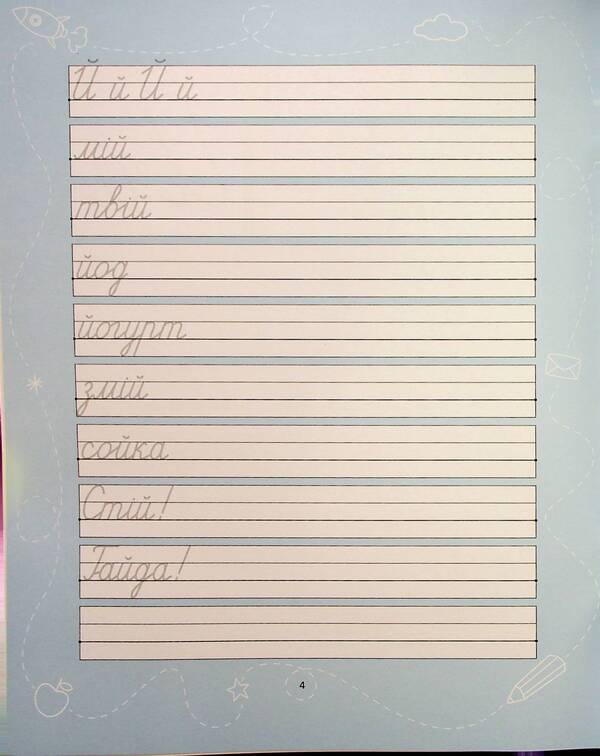 Й й Й й
мій
твій
йод
йогурт
змій
сойка
Стій!
Гайда!
4